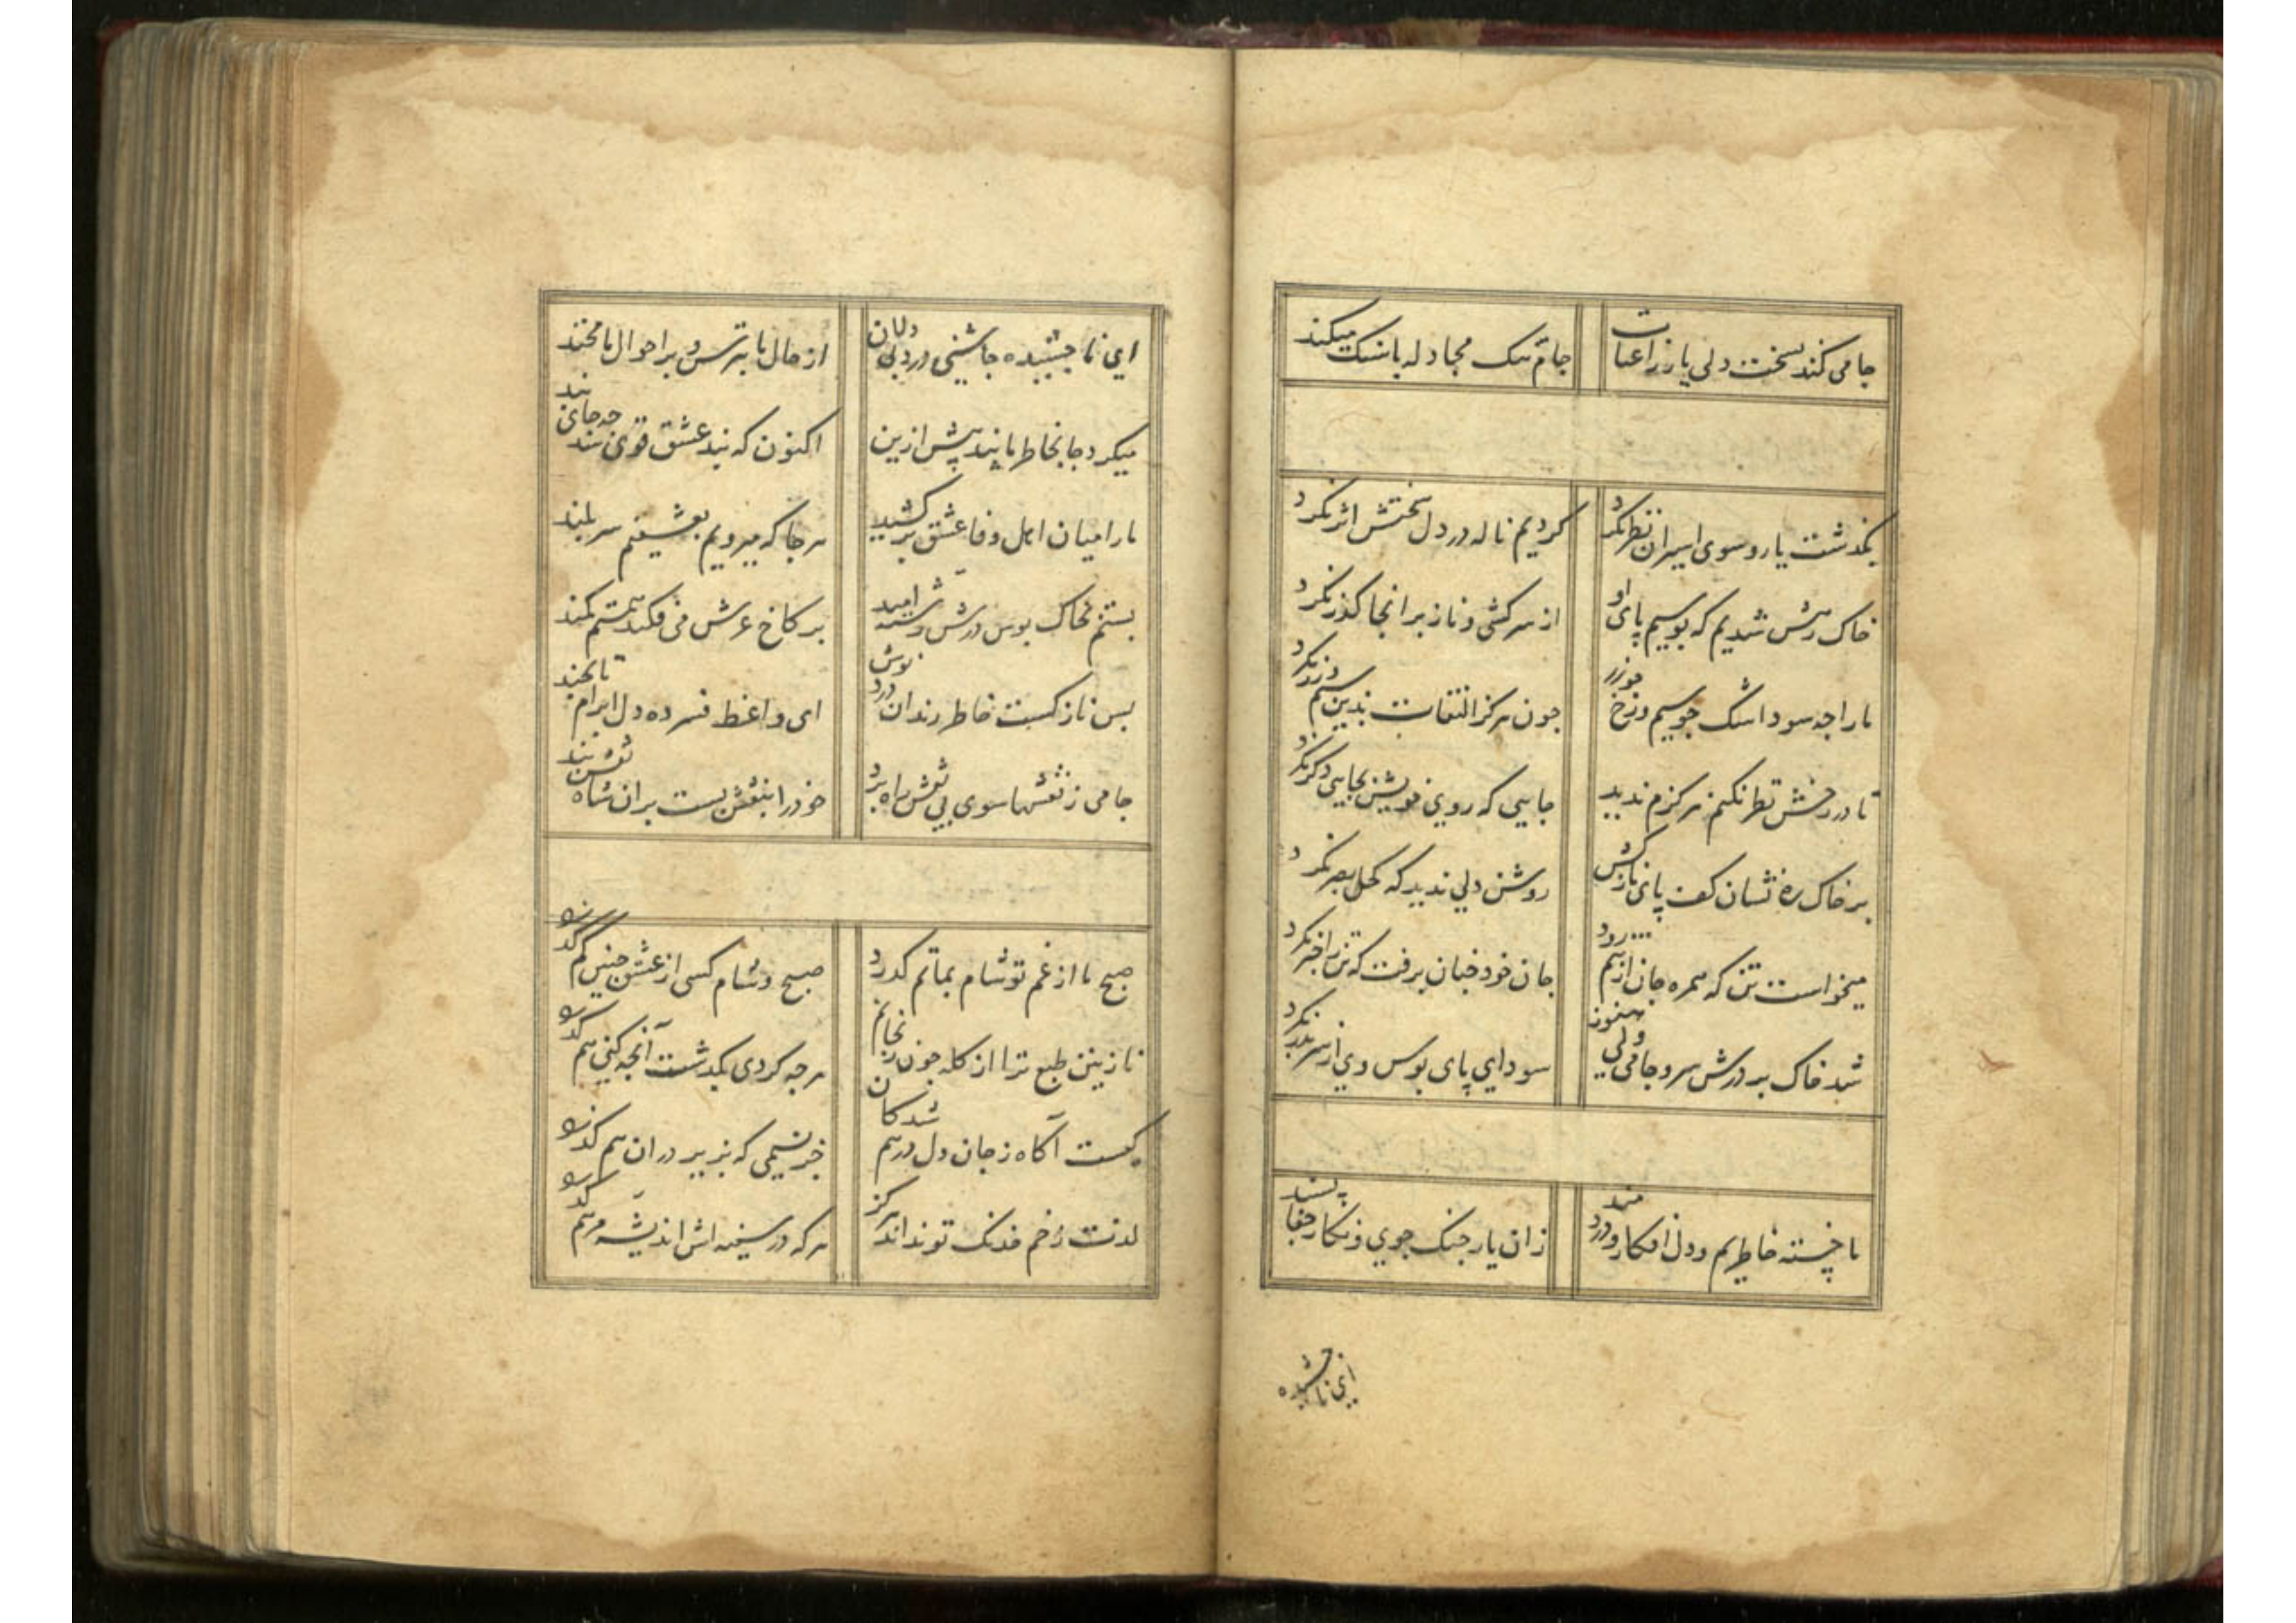 جامی کند سخت دلی یار زاعتاب جامی سک مجادله باسنک میکند
بگذشت یار و سوی اسیران نظر نکرد کردیم ناله در دل سختش اثر نکرد
خاک رهش شدیم که بوسیم پای او از سرکشی و ناز بر انجا گذر نکرد
ما را چه سود اشک چو سیم و رخ چو زر چون هرگز التفات بدین سیم و زر نکرد
تا در رخش نظر نکنم هرگزم ندید جایی که روی خویش بجایی دگر نکرد
بر خاک ره نشان کف پای نازکش روشن دلی ندید که کحل بصر نکرد
میخواست تن که همره جان از پیم رود جان خود چنان برفت که تن را خبر نکرد
شد خاک بر درش سر و جامی ولی هنوز سودای پای بوس وی از سر بدر نکرد
ما خسته خاطریم و دل افکار و دردمند زان یار جنک جوی و نکار جفا پسند
ای ناچشیده
ای ناچشیده چاشنی درد دل از حال ما بترس و بر احوال ما مخند
میکرد جا بخاطر ما پند پیش ازین اکنون که بند عشق قوی شد چه جای پند
ما را میان اهل وفا عشق بر کشید هر جا که میرویم بعشقیم سر بلند
بستم بخاک بوس درش رشته امید بر کاخ عرش می فکند همتم کمند
بس نازکست خاطر رندان درد نوش ای واعظ فسرده دل ابرام تا بچند
جامی ز نقشها سوی بی نقش راه برد خود را بنقش بست بران شاه نقش بند
صبح ما از غم تو شام بماتم گذرد صبح و شام کسی از عشق چنین کم گذرد
نازنین طبع ترا از کله چون رنجانم هر چه کردی بگذشت آنچه کنی هم گذرد
کیست آگاه ز جان دل درهم شدکان جز نسیمی که بزیر در ان هم گذرد
لذت زخم خدنک تو نداند هرگز هر که در سینه اش اندیشه مرهم گذرد